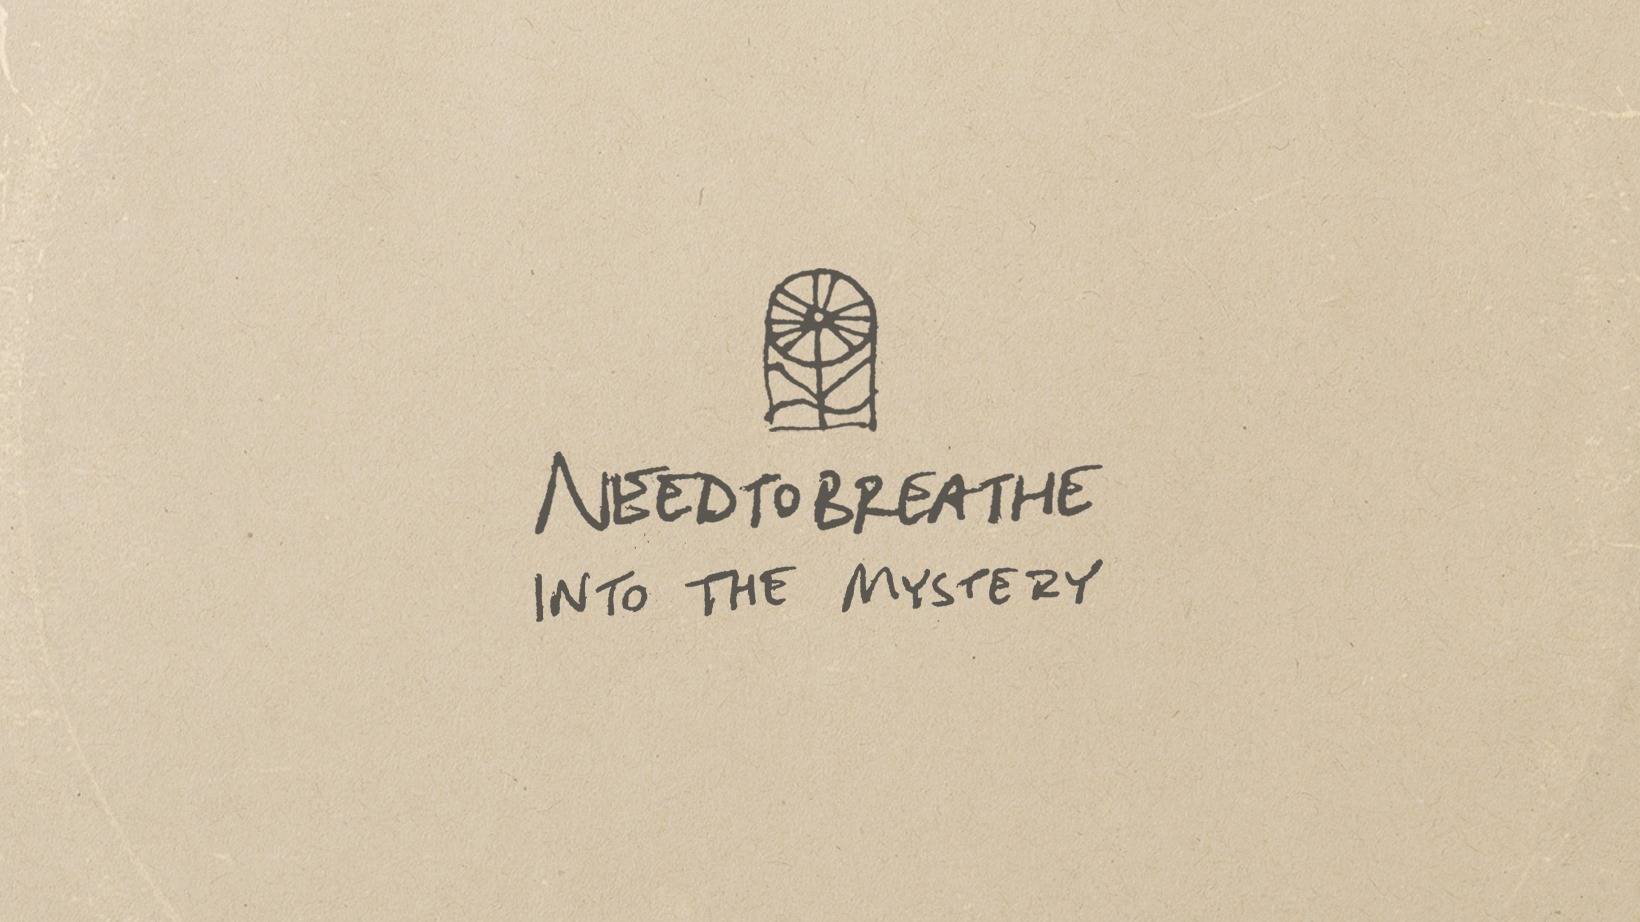 NEEDTOBREATHE
INTO THE MYSTERY